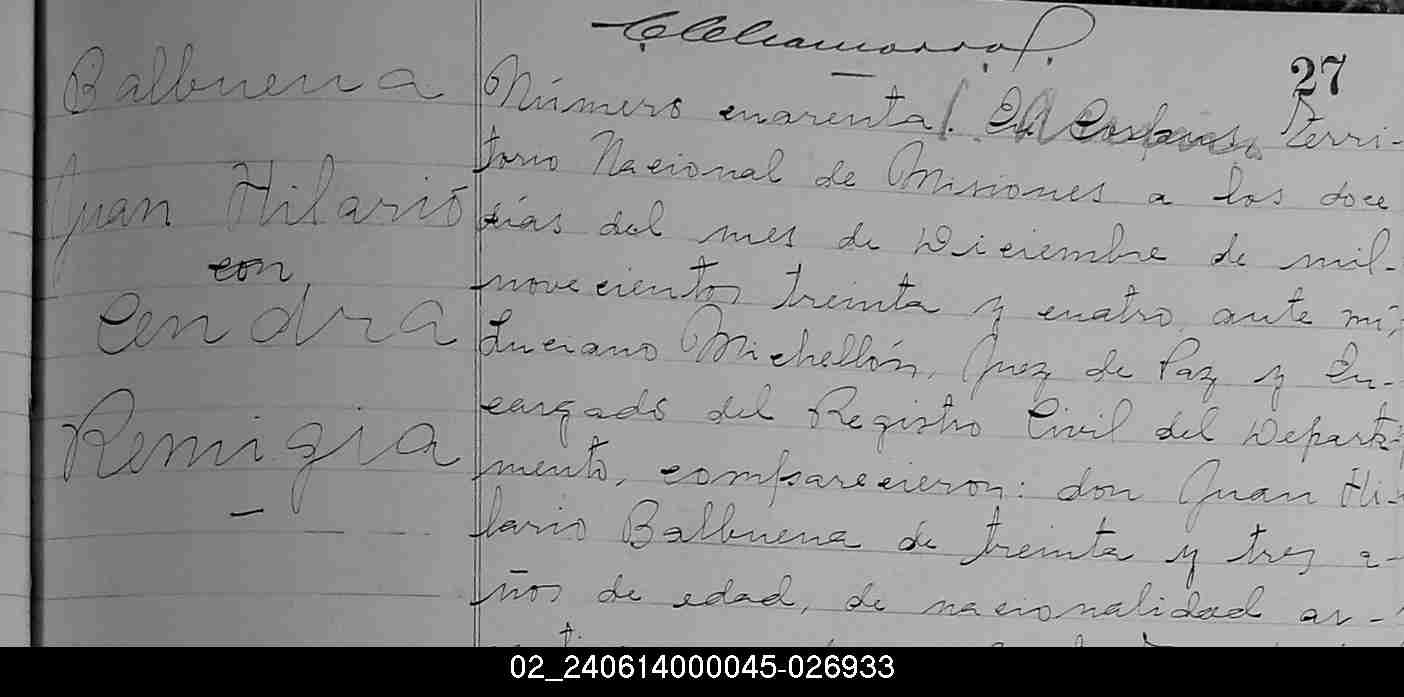 27
Balbuena
Juan Hilario
con
Cendra
Remigia
Número cuarenta. En Corpus, Terri-
torio Nacional de Misiones a los doce
días del mes de Diciembre de mil-
novecientos treinta y cuatro, ante mí,
Luciano Michellón, Juez de Paz y En-
cargado del Registro Civil del Departa-
mento, comparecieron: don Juan Hi-
lario Balbuena de treinta y tres a-
ños de edad, de nacionalidad ar-
02_240614000045-026933